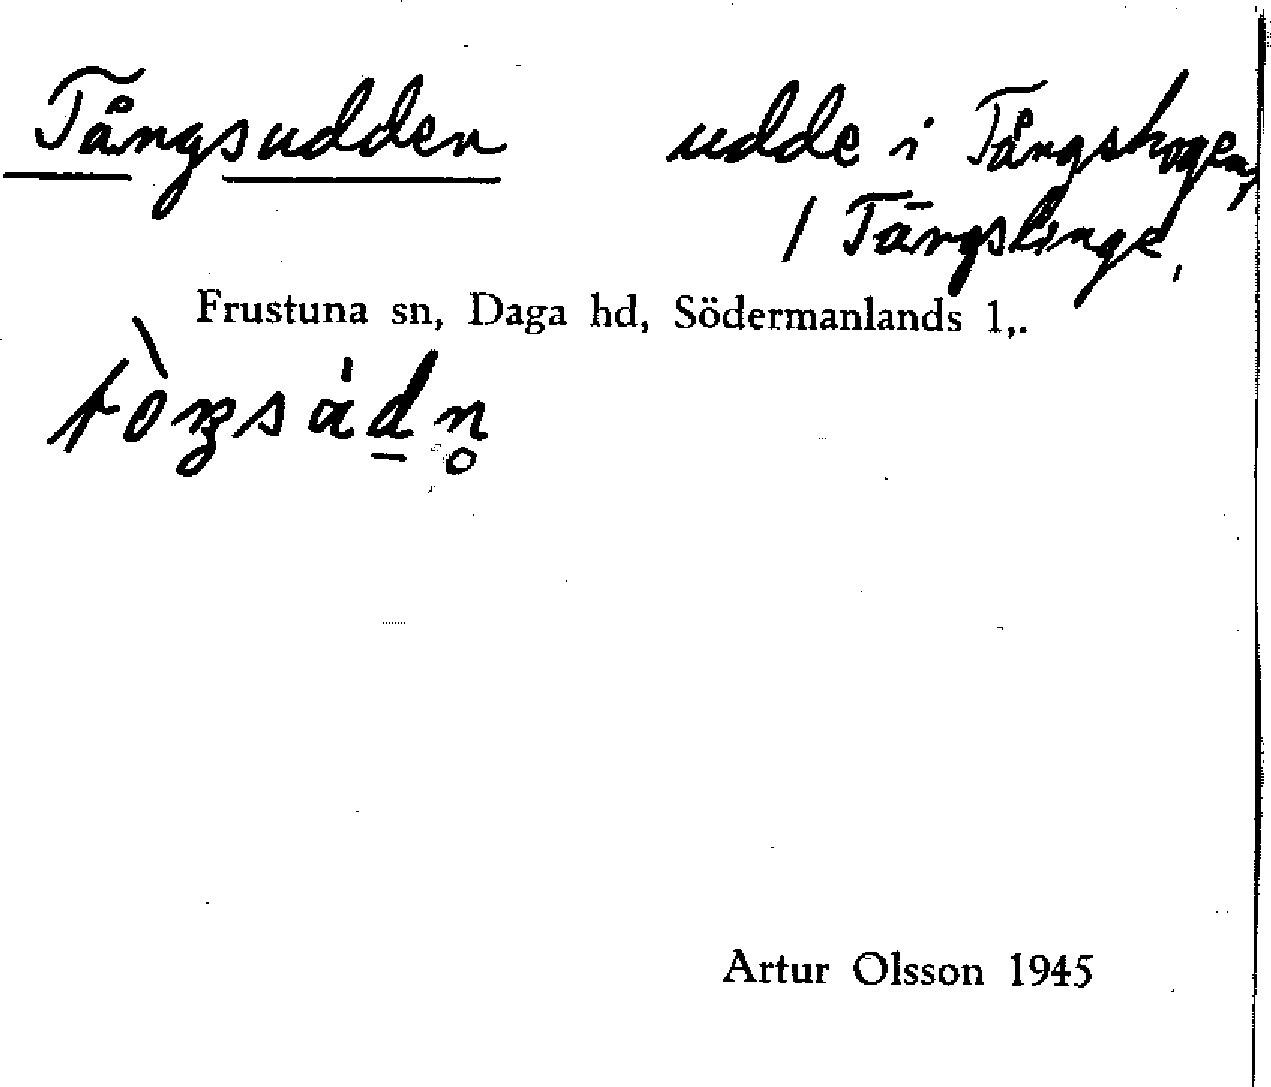 Tångsudden udde i Tångskogen,
/ Tängslinge,
Frustuna sn, Daga hd, Södermanlands l,.
Artur Olsson 1945